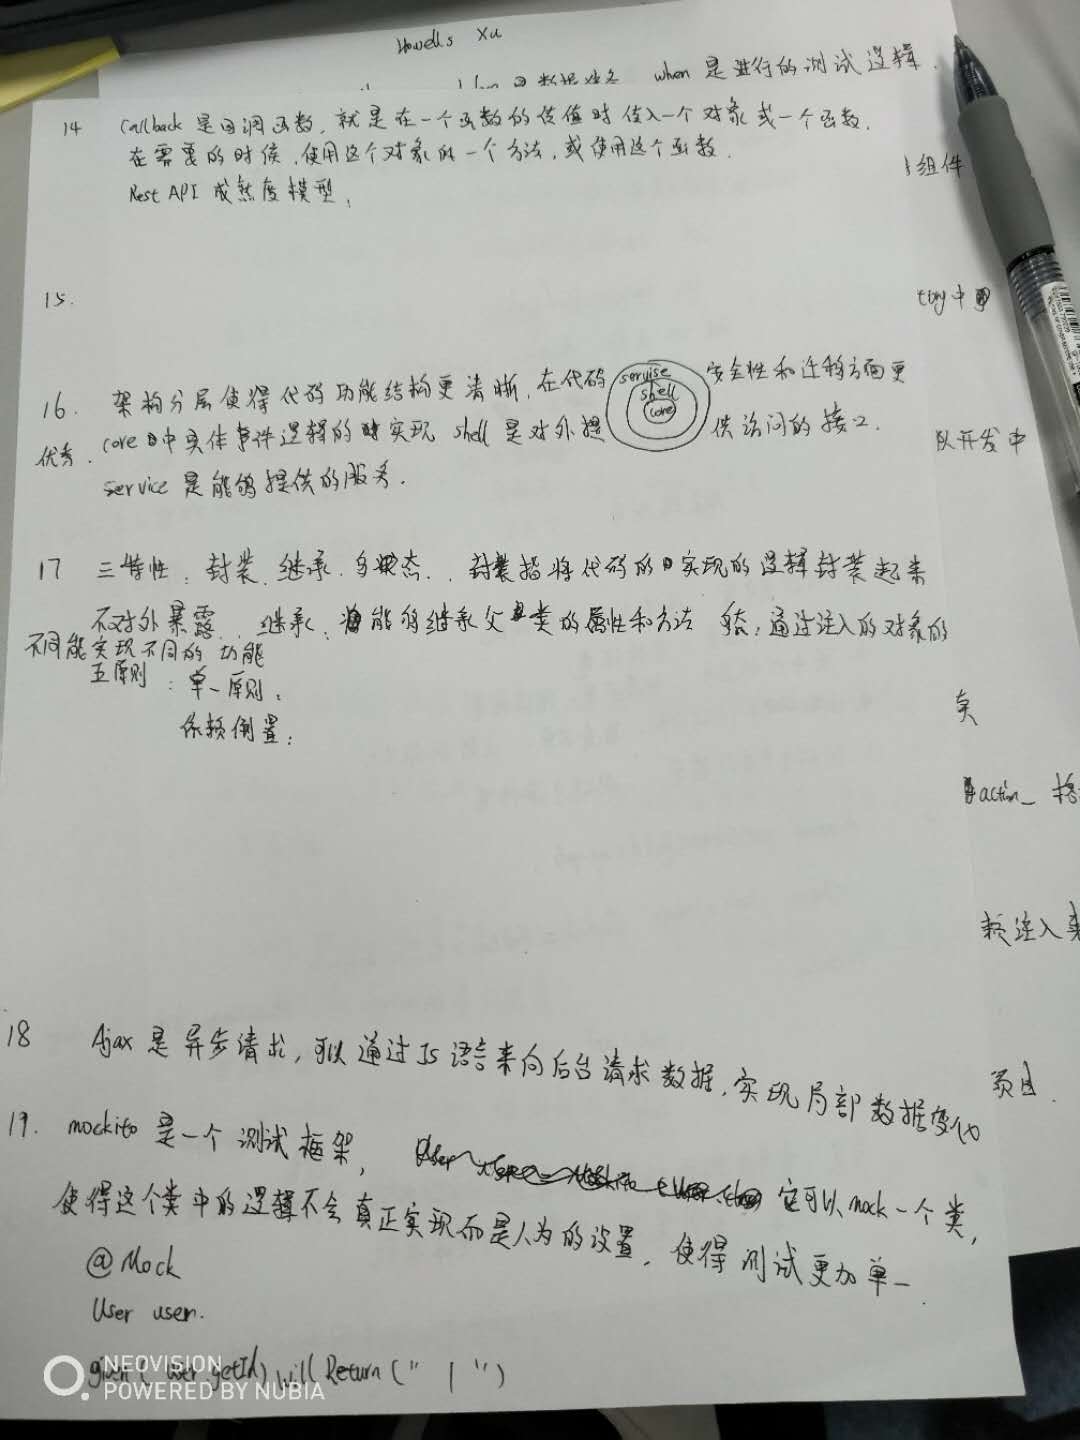 Howells Xu
when 是进行的测试逻辑.
14 Callback 是回调函数, 就是在一个函数的传值时传入一个对象或一个函数.
在需要的时候, 使用这个对象的一个方法, 或使用这个函数.
组件
Rest API 成熟度模型,
15.
中
16. 架构分层使得代码功能结构更清晰, 在代码安全性和迁移方面更
servise
shell
core
优秀. core 中实体事件逻辑的实现 shell 是对外提供访问的接口.
队开发中
service 是能够提供的服务.
17 三特性: 封装, 继承, 多态. 封装指将代码的实现的逻辑封装起来
不对外暴露. 继承: 能够继承父类的属性和方法 多态: 通过注入的对象的
不同能实现不同的功能
五原则: 单一原则:
依赖倒置:
action_
赖注入
18 Ajax 是异步请求, 可以通过 JS 语言来向后台请求数据, 实现局部数据变化
项目.
19. mockito 是一个测试框架, 它可以 mock 一个类,
使得这个类中的逻辑不会真正实现而是人为的设置, 使得测试更加单一.
@Mock
User user.
given( user.getId) will Return (" 1 ")
NEOVISION
POWERED BY NUBIA